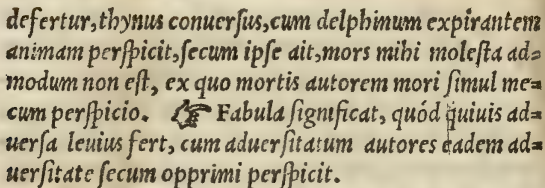 defertur, thynus conuerſus, cum delphinum expirantem
animam perſpicit, ſecum ipſe ait, mors mihi moleſta ad⸗
modum non eſt, ex quo mortis autorem mori ſimul me⸗
cum perſpicio. ☞ Fabula ſignificat, quód quiuis ad⸗
uerſa leuius fert, cum aduerſitatum autores eadem ad⸗
uerſitate ſecum opprimi perſpicit.